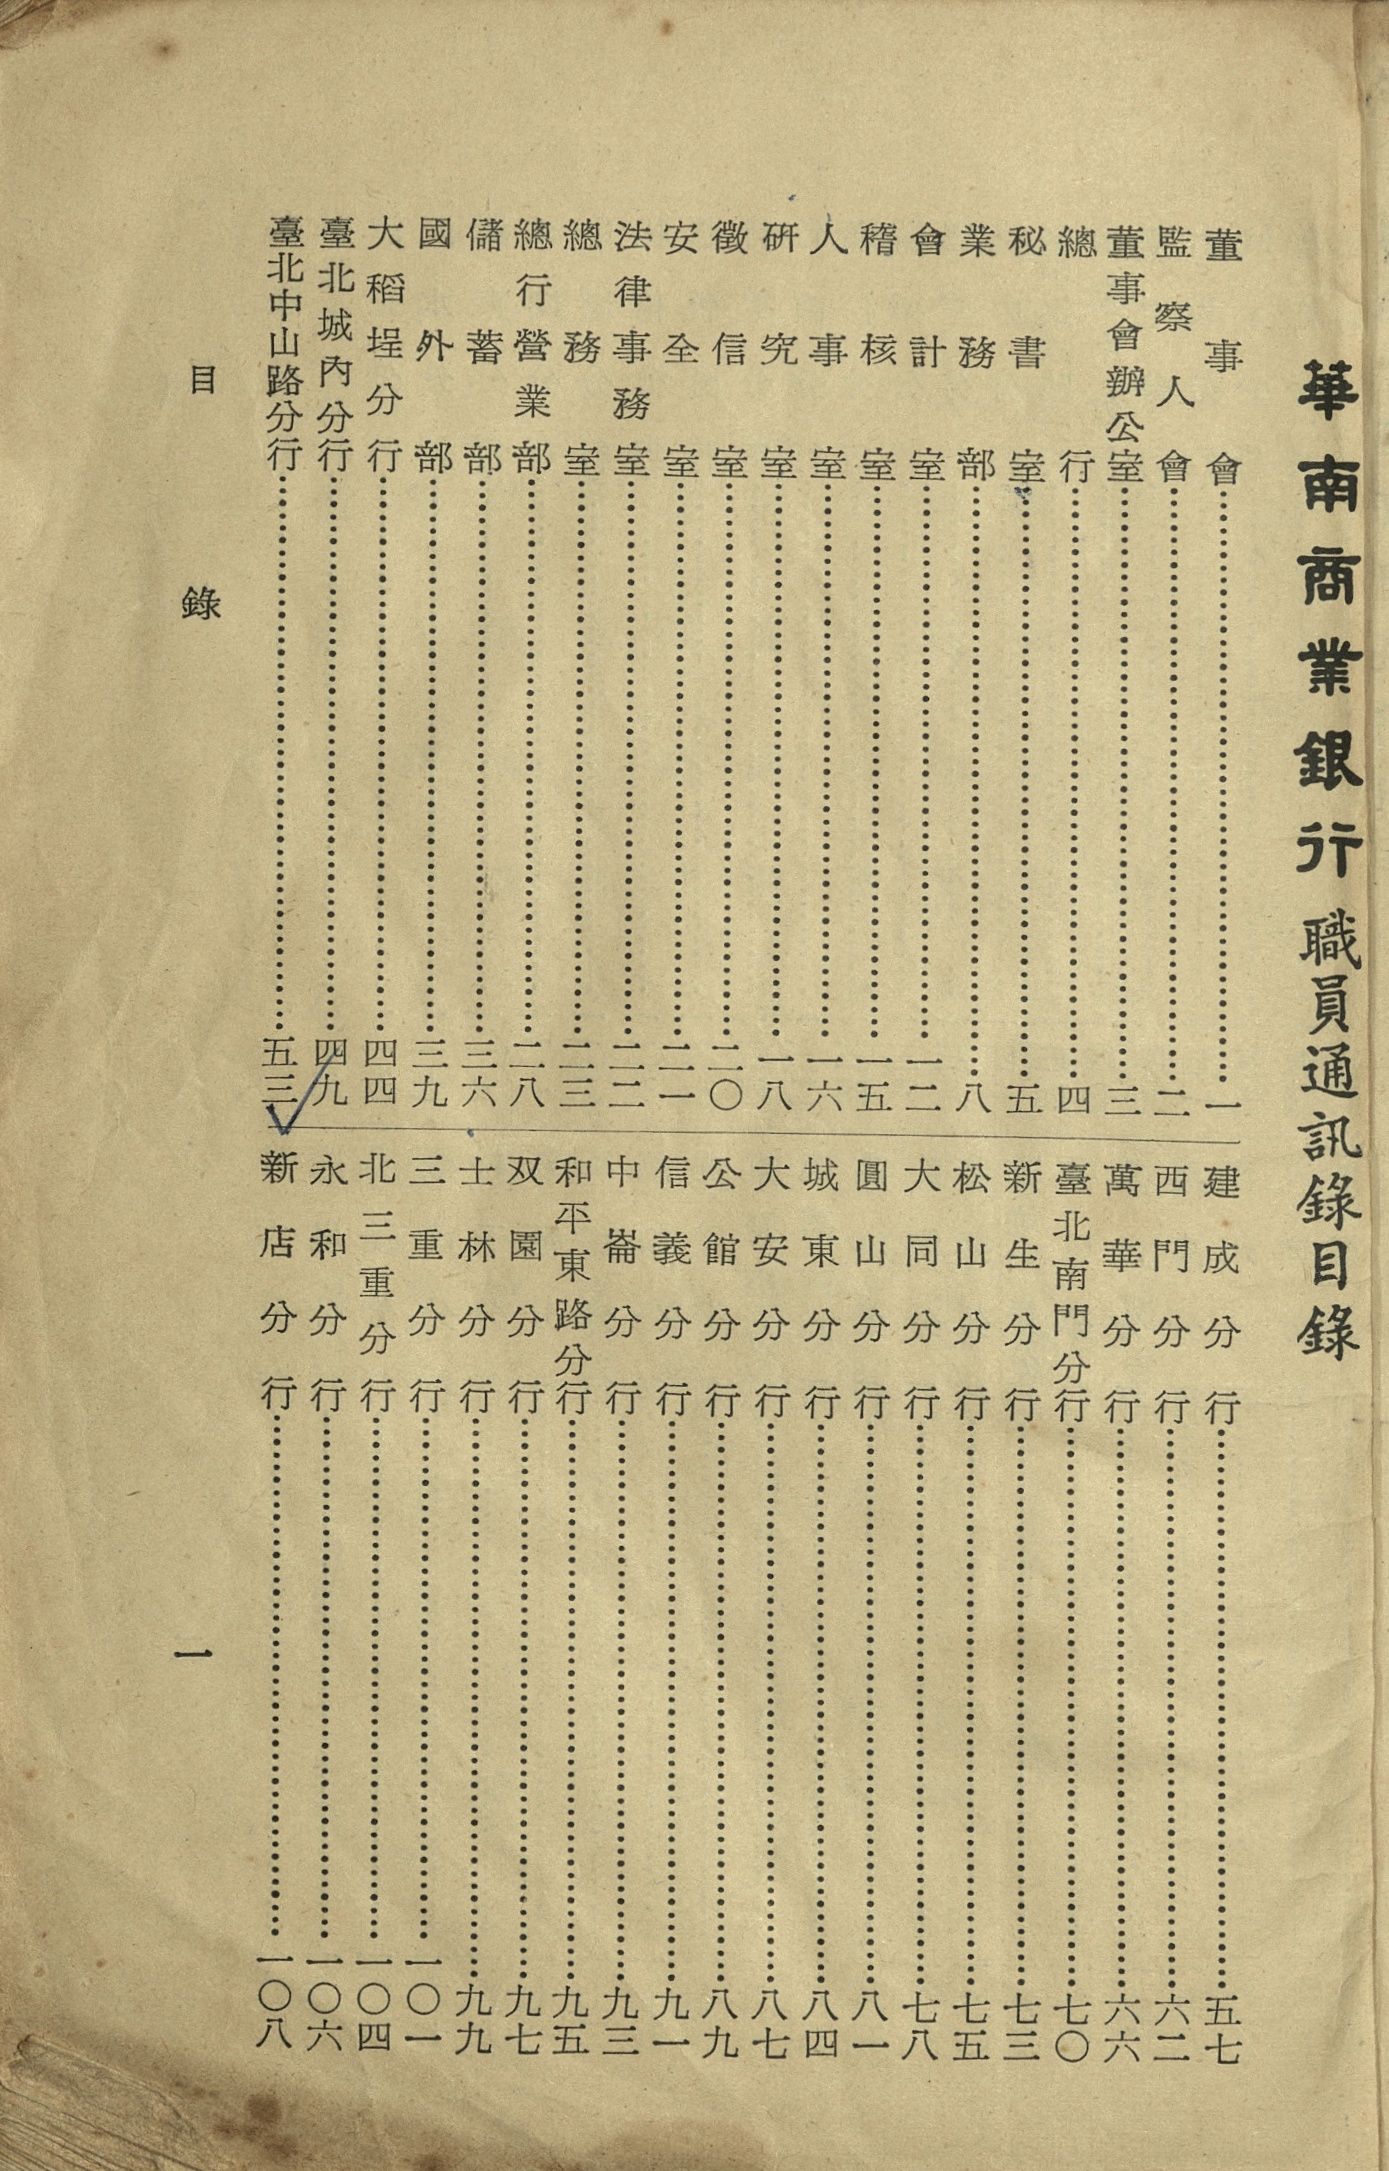 華南商業銀行職員通訊錄目錄
董事會……一
監察人會……二
董事會辦公室……三
總行……四
秘書室……五
業務部……八
會計室……一二
稽核室……一五
人事室……一六
研究室……一八
徵信室……二〇
安全室……二一
法律事務室……二二
總務室……二三
總行營業部……二八
儲蓄部……三六
國外部……三九
大稻埕分行……四四
臺北城內分行……四九
臺北中山路分行……五三
建成分行……五七
西門分行……六二
萬華分行……六六
臺北南門分行……七〇
新生分行……七三
松山分行……七五
大同分行……七八
圓山分行……八一
城東分行……八四
大安分行……八七
公館分行……八九
信義分行……九一
中崙分行……九三
和平東路分行……九五
双園分行……九七
士林分行……九九
三重分行……一〇一
北三重分行……一〇四
永和分行……一〇六
新店分行……一〇八
目錄
一